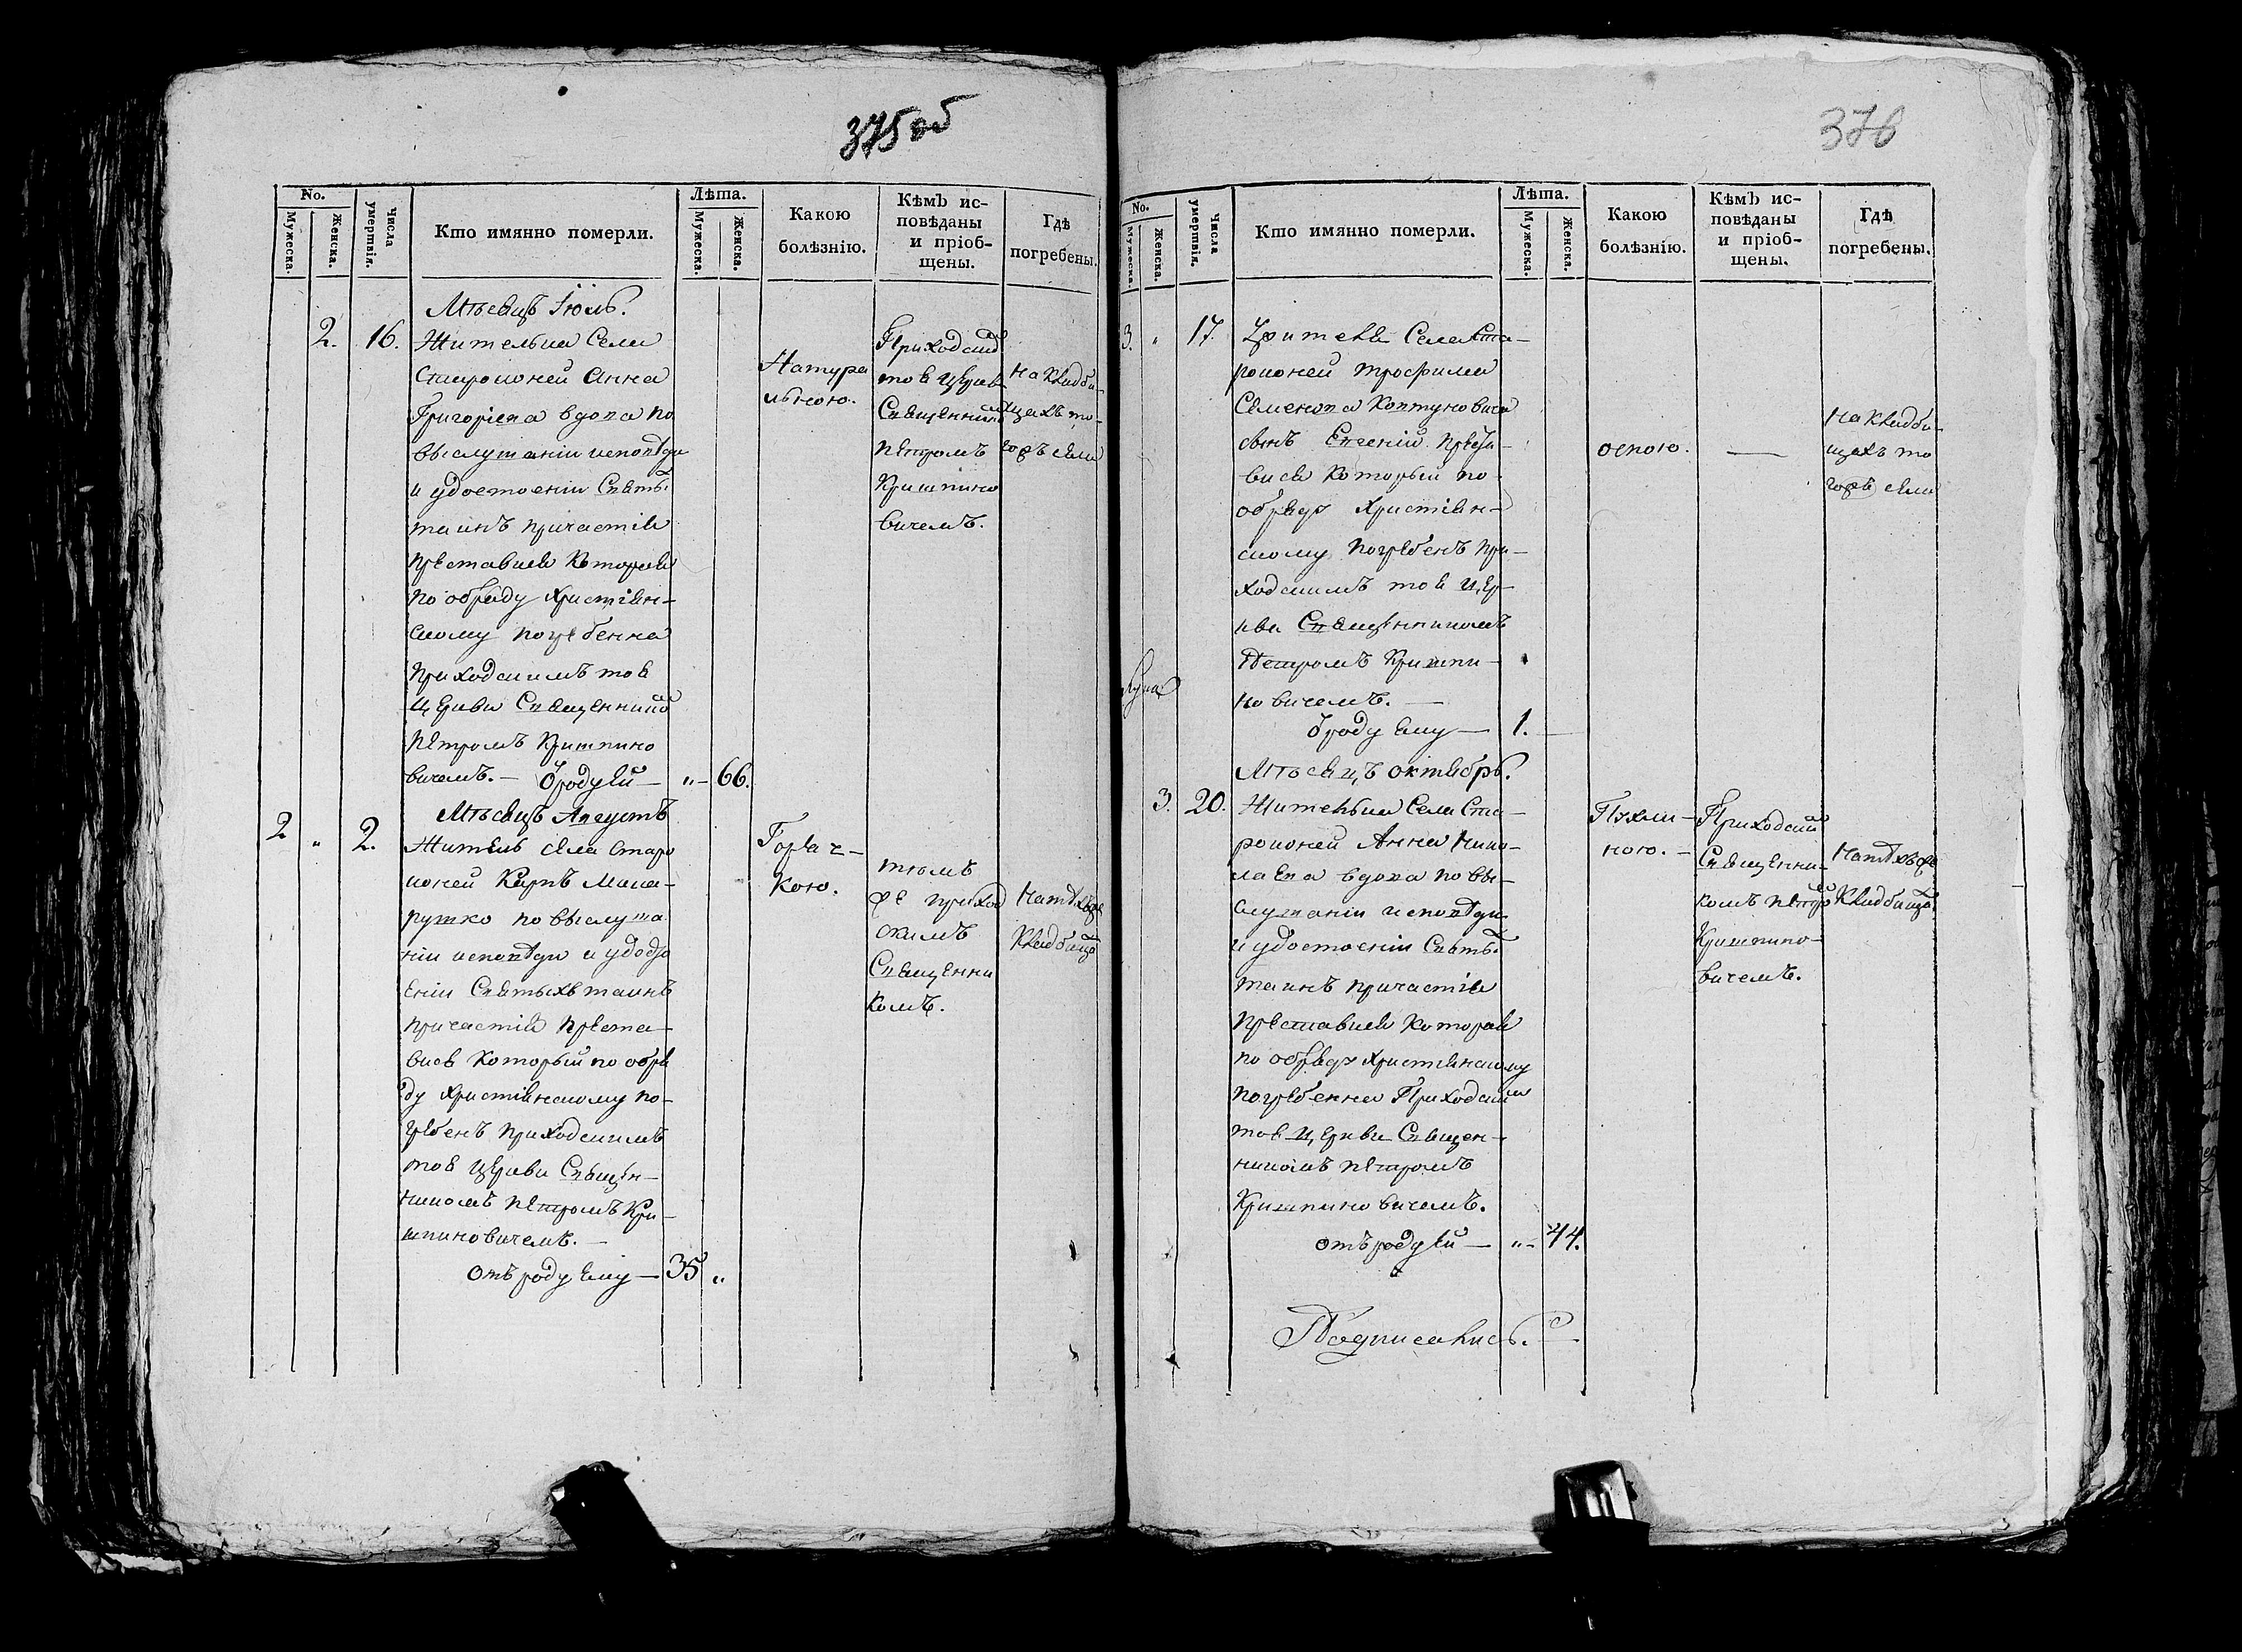 375 об
No.
Мужеска.
Женска.
Числа умертвія.
Кто имянно померли.
Лѣта.
Мужеска.
Женска.
Какою болѣзнію.
Кѣмъ исповѣданы и пріобщены.
Гдѣ погребены.
Мѣсяцъ Іюль.
2. 16. Жителька Села
Староконей Анна
Григоріева вдова по
выслушаніи исповѣди
и удостоеніи Святы
таинъ причастія
преставися Которая
по обряду Христіян-
скому погребенна
приходскимъ тоя
церкви Священнико
Петромъ Кришпино
вичемъ. – ѿроду ей – „– 66.
Натура
льною.
Приходски
тоя Церкв
Священнико
Петромъ
Кришпино
вичемъ.
на кладби-
щахъ то-
гожъ села
Мѣсяцъ Августъ
2 „ 2. Житель села Старо
коней Карпъ Мака-
рушко по выслуша
ніи исповѣди и удосто
еніи Святыхъ таинъ
причастія преста-
вися Который по обря
ду Христіянскому по-
гребенъ приходскимъ
тоя Церкви Священ-
никомъ Петромъ Кри-
шпиновичемъ. –
отъ роду ему – 35 „
Горяч-
кою.
тѣмъ
же приход
скимъ
Священни
комъ.
на тѣхъже
кладбищахъ
376
No.
Мужеска.
Женска.
Числа умертвія.
Кто имянно померли.
Лѣта.
Мужеска.
Женска.
Какою болѣзнію.
Кѣмъ исповѣданы и пріобщены.
Гдѣ погребены.
3. „ 17. Жителя Села Ста-
роконей Трофима
Семенова Колтуновича
сынъ Евгеній преста-
вися Который по
обряду Христіян-
скому погребенъ при-
ходскимъ тоя цер-
кви Священникомъ
Петромъ Кришпи-
новичемъ. –
ѿроду ему – 1.
оспою.
—
на кладби-
щахъ то
гожъ села
Мѣсяцъ октябрь.
3. 20. Жителька Села Ста-
роконей Анна Нико-
лаева вдова по вы-
слушаніи исповѣди
и удостоеніи Святы
таинъ причастія
преставися Которая
по обряду Христіянскому
погребенна Приходским
тоя Церкви Священ-
никомъ Петромъ
Кришпиновичемъ.
отъ роду ей – „– 44.
Пухли-
ною. –
Приходски
Священни-
комъ Петро
Кришпино-
вичемъ.
на тѣхъже
кладбищах
Подписались.